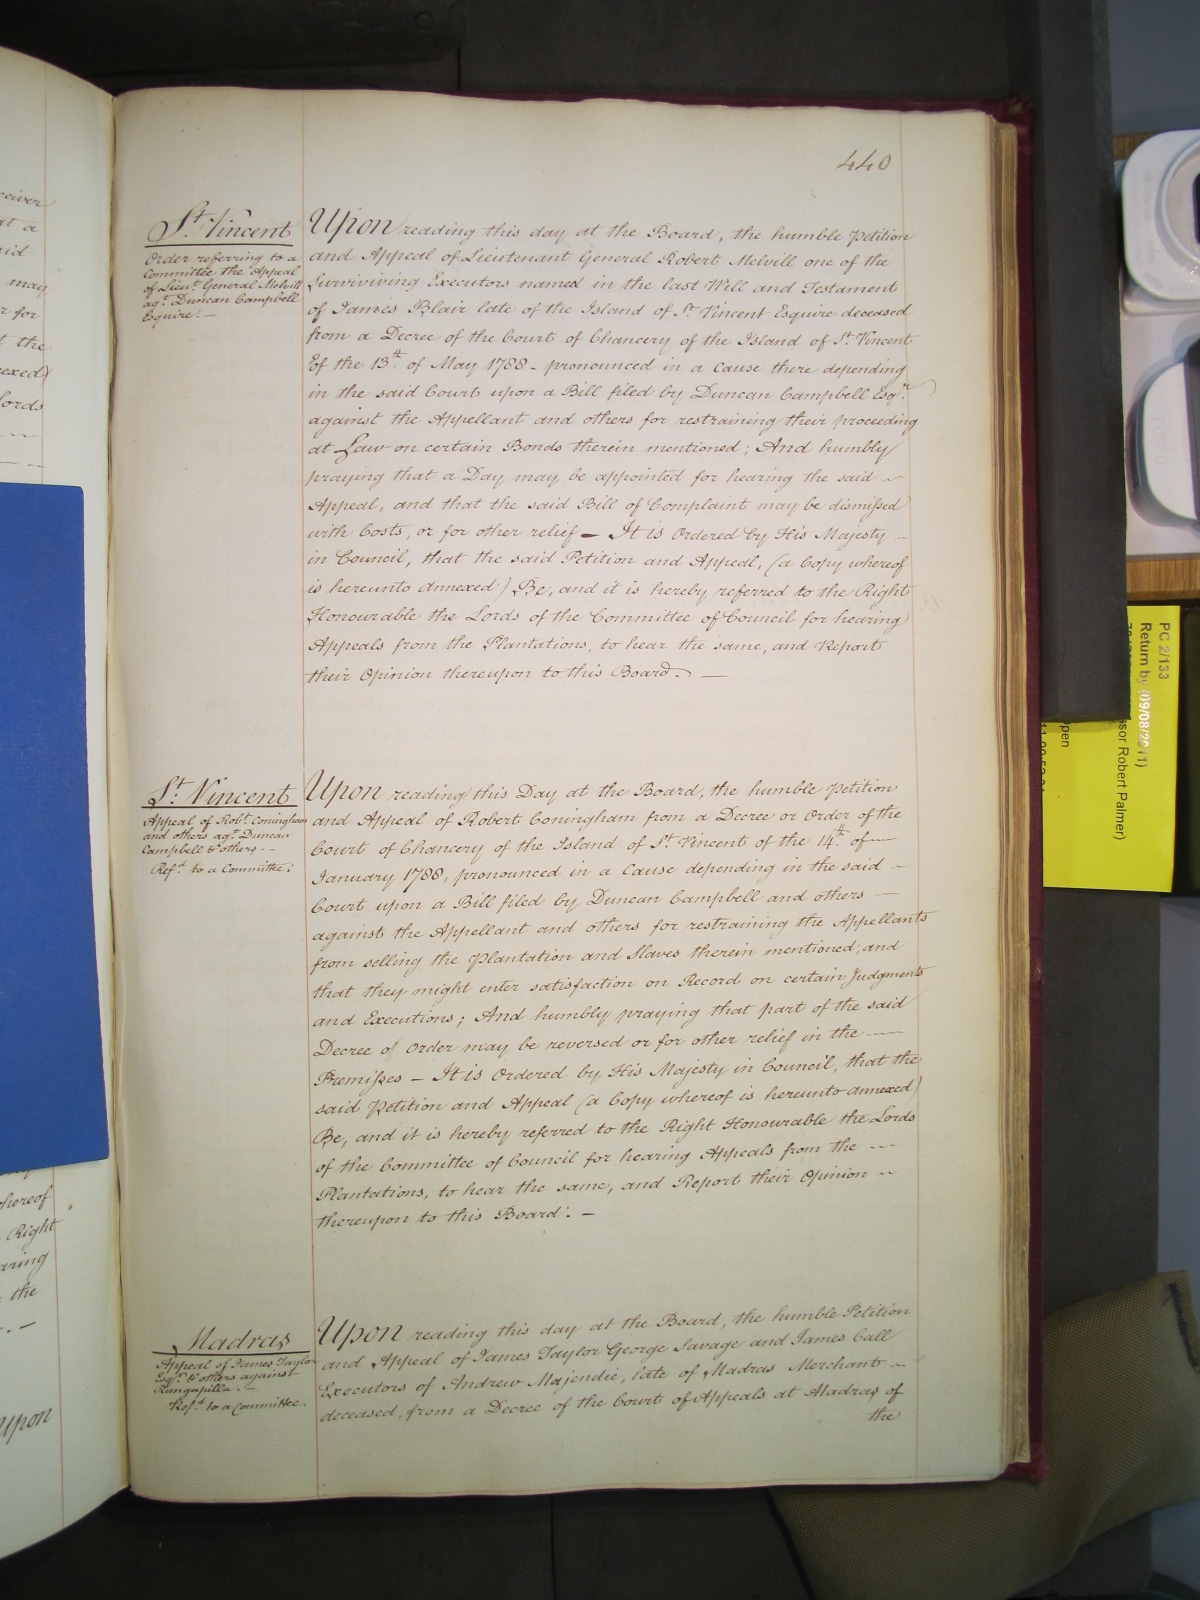 440
St. Vincent
Order referring to a
Committee the Appeal
of Lieut. General Melvill
agt. Duncan Campbell
Esquire. —
Upon reading this day at the Board, the humble Petition
and Appeal of Lieutenant General Robert Melvill one of the
Surviviving Executors named in the last Will and Testament
of James Blair late of the Island of St. Vincent Esquire deceased
from a Decree of the Court of Chancery of the Island of St. Vincent
Of the 13th. of May 1788 - pronounced in a cause there depending
in the said Court upon a Bill filed by Duncan Campbell Esqr.
against the Appellant and others for restraining their proceeding
at Law on certain Bonds therein mentioned; And humbly
praying that a Day may be appointed for hearing the said ~
Appeal, and that the said Bill of Complaint may be dismissed
with Costs, or for other relief — It is Ordered by His Majesty —
in Council, that the said Petition and Appeal, (a Copy whereof
is hereunto annexed) Be, and it is hereby referred to the Right
Honourable the Lords of the Committee of Council for hearing
Appeals from the Plantations, to hear the same, and Report
their Opinion thereupon to this Board. —
St. Vincent
Appeal of Robt. Coningham
and others agt. Duncan
Campbell & others. --
Refd. to a Committee.
Upon reading this Day at the Board, the humble Petition
and Appeal of Robert Coningham from a Decree or Order of the
Court of Chancery of the Island of St. Vincent of the 14th. of —
January 1788, pronounced in a Cause depending in the said —
Court upon a Bill filed by Duncan Campbell and others —
against the Appellant and others for restraining the Appellants
from selling the Plantation and Slaves therein mentioned, and
that they might enter satisfaction on Record on certain Judgments
and Executions; And humbly praying that part of the said
Decree of Order may be reversed or for other relief in the —
Premisses — It is Ordered by His Majesty in Council, that the
said Petition and Appeal (a Copy whereof is hereunto annexed)
Be, and it is hereby referred to the Right Honourable the Lords
of the Committee of Council for hearing Appeals from the ---
Plantations, to hear the same, and Report their Opinion —
thereupon to this Board. —
Madras
Appeal of James Taylor
Esqr. & others against
Rungapilla. —
Refd. to a Committee.
Upon reading this day at the Board, the humble Petition
and Appeal of James Taylor George Savage and James Call
Executors of Andrew Majendie, late of Madras Merchant —
deceased, from a Decree of the Court of Appeals at Madras of
the
ceiver
at a
aid
may
r for
t the
nexed)
Lords
whereof
Right
aring
the
Upon
PC 2/133
Return by (09/08/2011)
ssor Robert Palmer)
pen